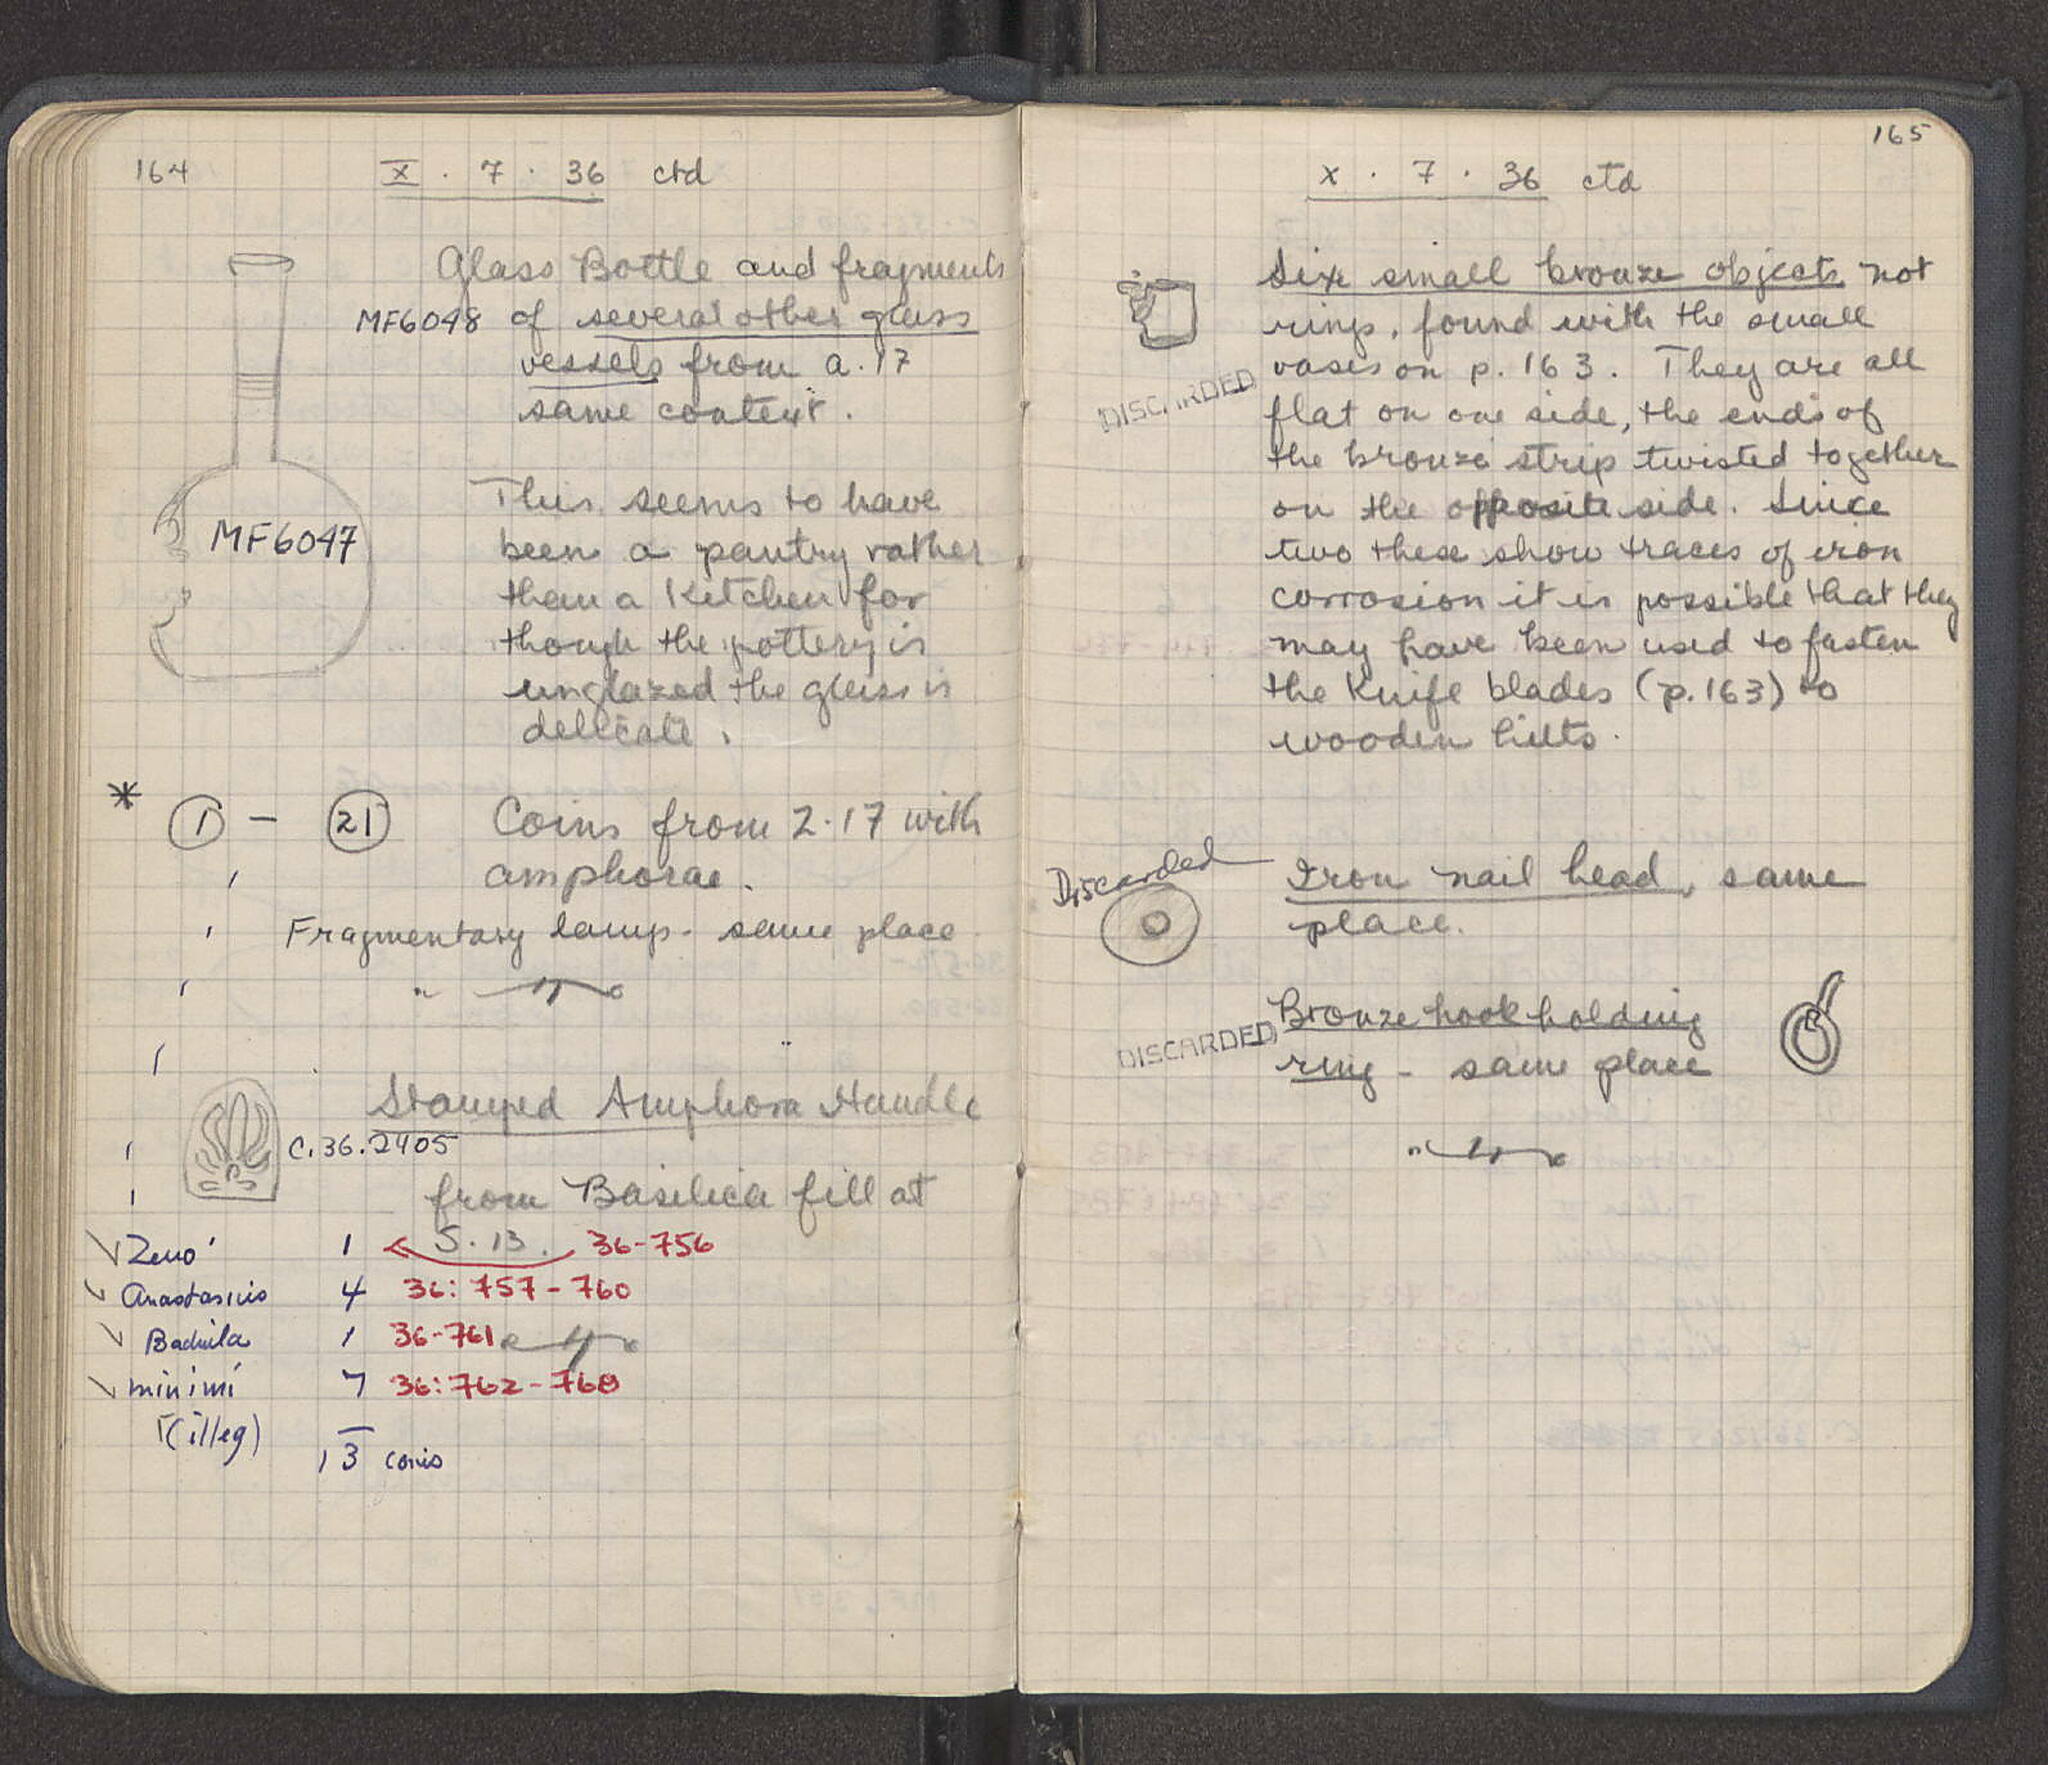 164
X . 7 . 36 ctd
Glass Bottle and fragments
MF6048 of several other glass
vessels from a.17
same context.
MF6047
This seems to have
been a pantry rather
than a kitchen for
though the pottery is
unglazed the glass is
delicate.
* 1 - 21 Coins from 2.17 with
amphorae.
Fragmentary lamp - same place
Stamped Amphora Handle
C.36.2405
from Basilica fill at
S.13.
Zeno 1 36-756
Anastasius 4 36:757-760
Baduila 1 36-761
minimi 7 36:762-768
(illeg)
13 coins
165
X . 7 . 36 ctd
Six small bronze objects not
rings, found with the small
vases on p. 163. They are all
DISCARDED
flat on one side, the ends of
the bronze strip twisted together
on the opposite side. Since
two these show traces of iron
corrosion it is possible that they
may have been used to fasten
the knife blades (p.163) to
wooden hilts.
Discarded
Iron nail head, same
place.
Bronze hook holding
DISCARDED
ring - same place